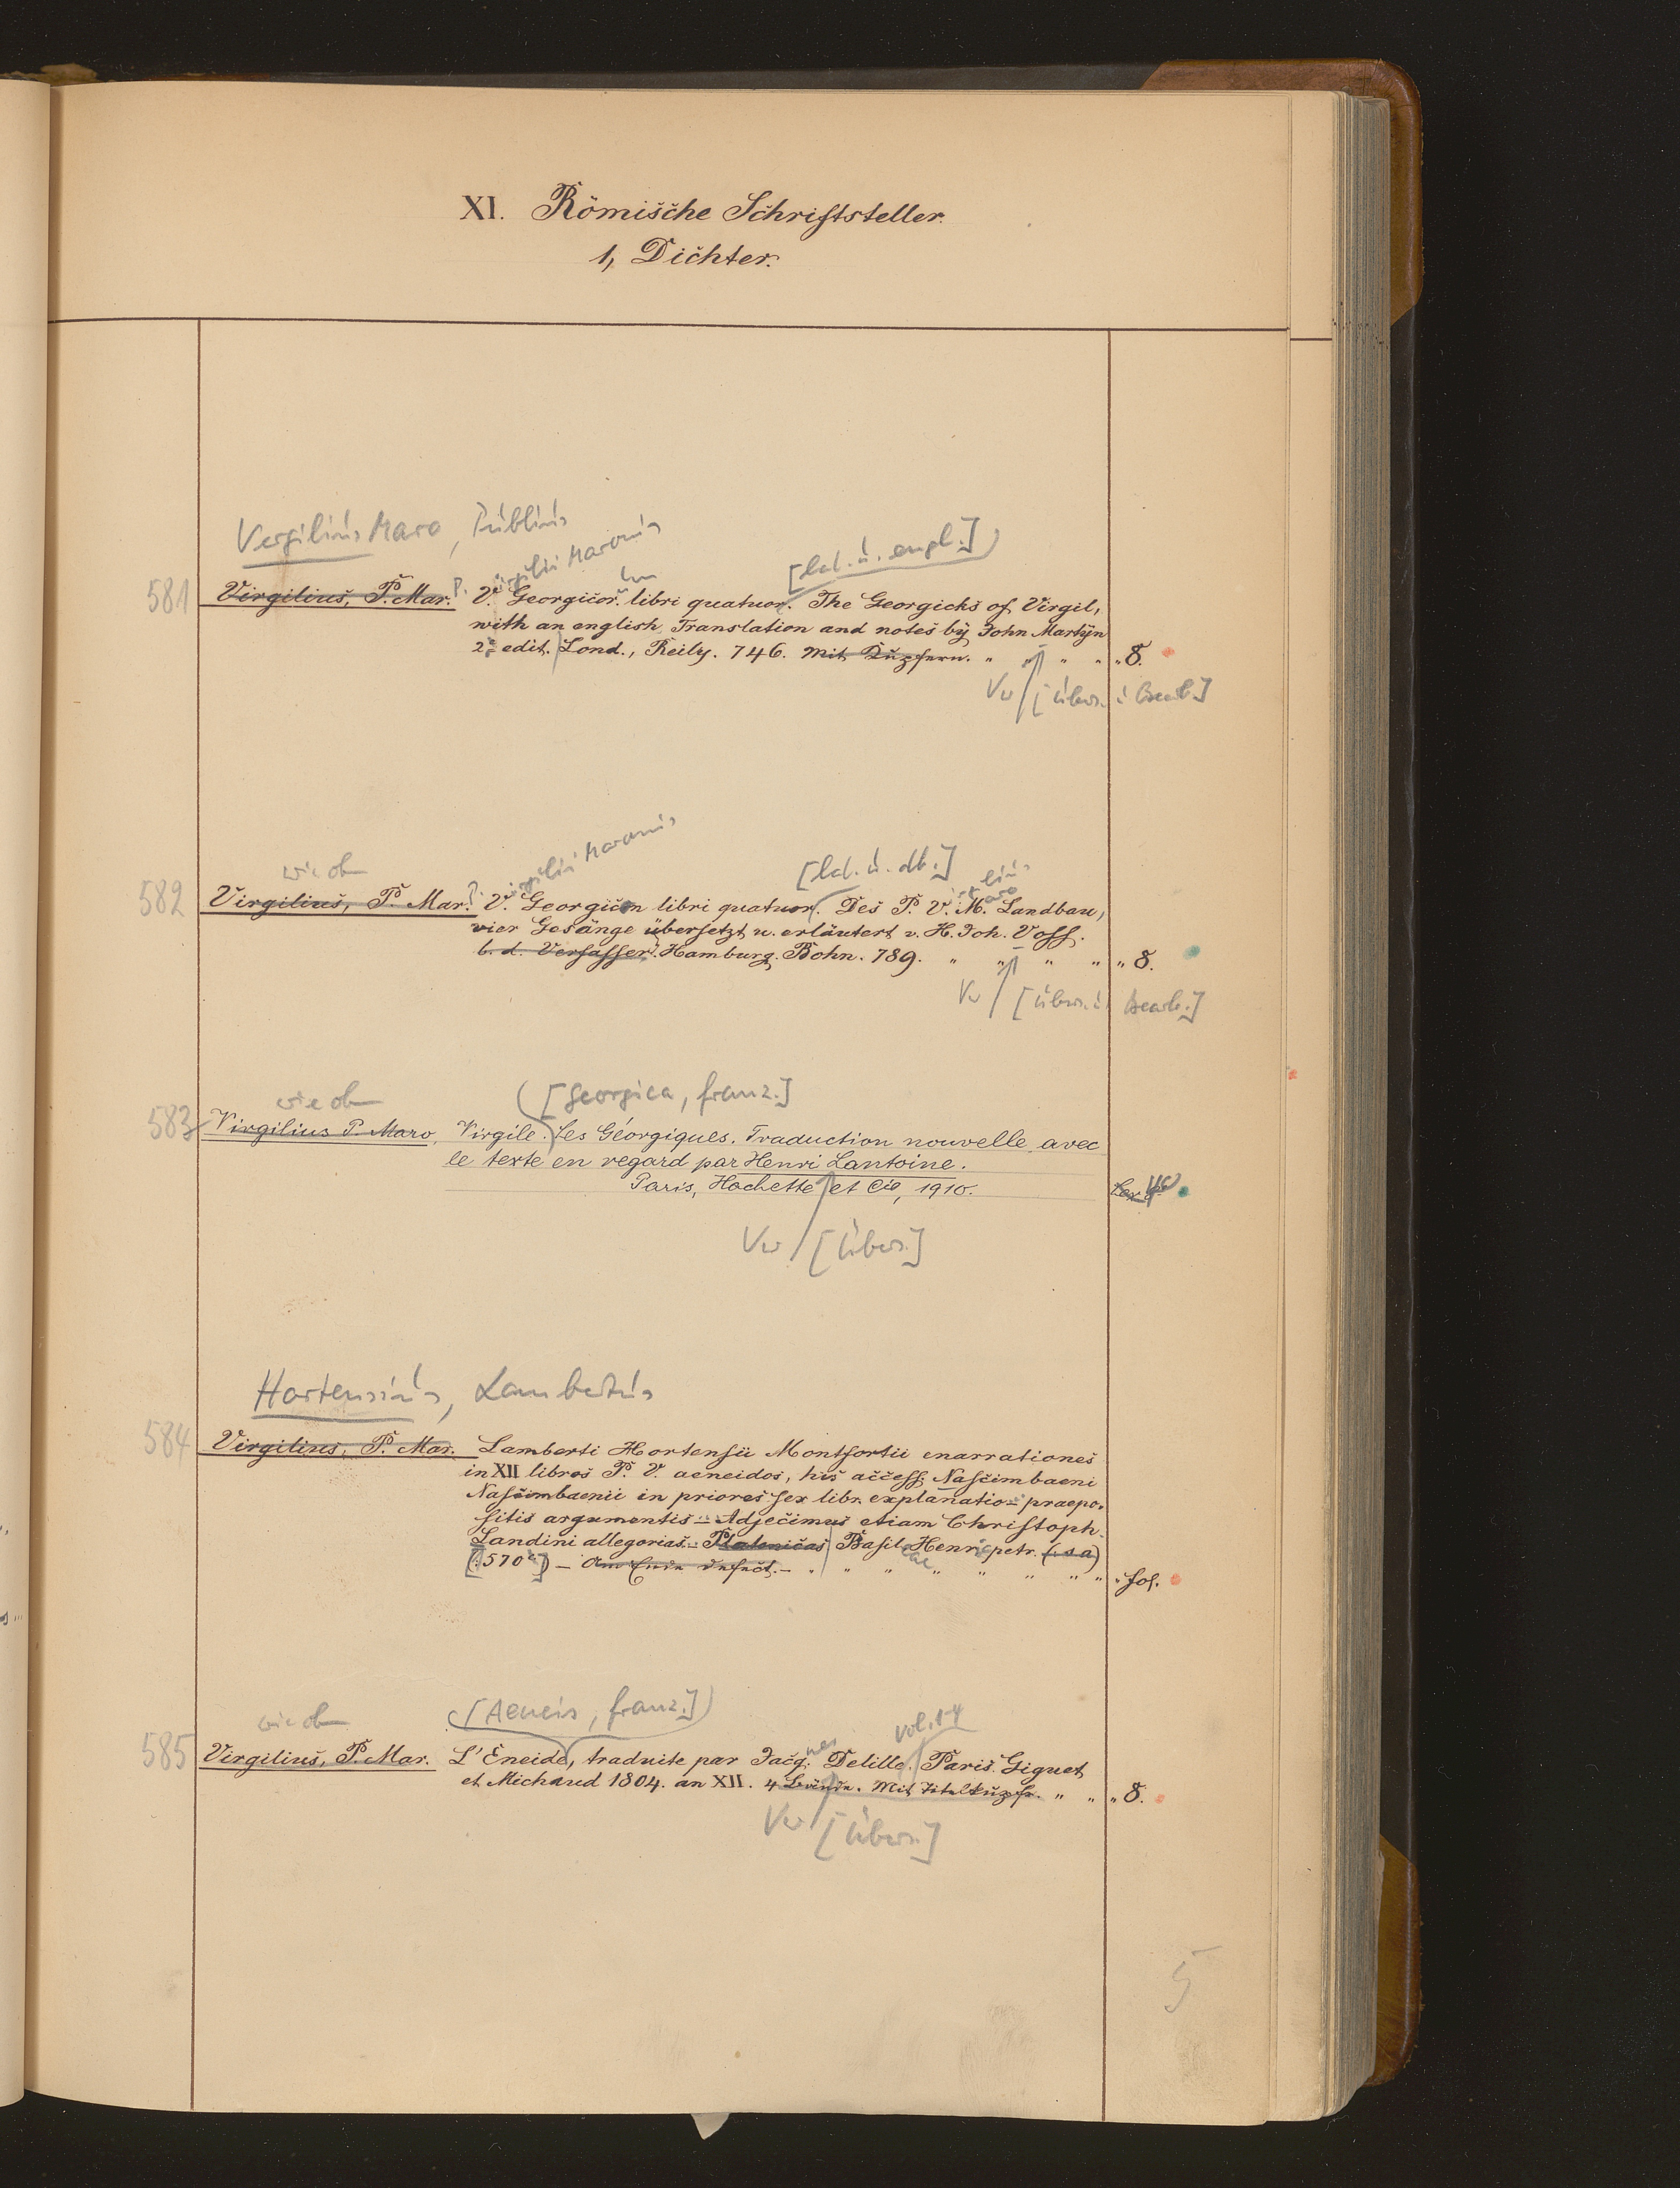 XI. Römische Schriftsteller.
1, Dichter.
Vergilius Maro, Publius
[lat. u. engl.]
581 Virgilius, P. Mar. P. V.irgilii Maronis Georgicor.um libri quatuor. The Georgicks of Virgil,
with an english Translation and notes by John Martyn
2. edit. Lond., Reily. 746. Mit Kupfern. " " " " " 8.
Vw [Übers. u. Bearb.]
wie ob
[lat. u. dt.]
582 Virgilius, P. Mar. P. V.irgilii Maronis Georgicon libri quatuor. Des P. V. M. Landbau,
vier Gesänge übersetzt u. erläutert v. H. Joh. Voss.
b. d. Verfasser. Hamburg. Bohn. 789. " " " " " 8.
Vw [Übers. u. Bearb.]
wie ob
[Georgica, franz.]
583 Virgilius P. Maro, Virgile. Les Géorgiques. Traduction nouvelle avec
le texte en regard par Henri Lantoine.
Paris, Hachette et Cie, 1910.
Vw [Übers.]
Hortensius, Lambertus
584 Virgilius, P. Mar. Lamberti Hortensii Montfortii enarrationes
in XII libros P. V. aeneidos, his access. Nascimbaeni
Nascimbaenii in priores sex libr. explanatio praepo-
sitis argumentis - Adjecimus etiam Christoph.
Landini allegorias. Platonicas Basileae Henricpetr. (s a)
[1570] - Am Ende defect. - " " " " " " " " fol.
wie ob
[Aeneis, franz.]
vol. 1-4
585 Virgilius, P. Mar. L'Eneide, traduite par Jacq.ues Delille. Paris. Giguet
et Michaud 1804. an XII. 4 Bände. Mit Titelkupfr. " " " 8.
Vw [Übers.]
5